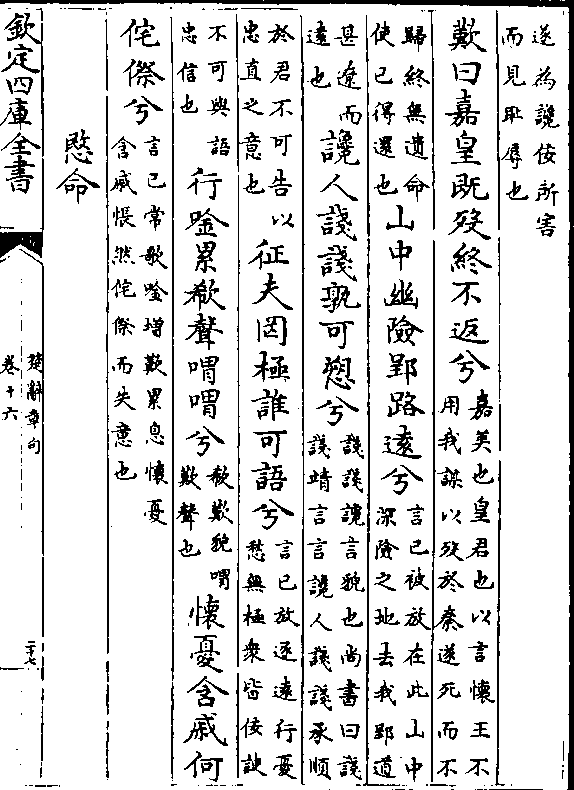 遂為讒佞所害
而見耻辱也
歎曰嘉皇既歿終不返兮嘉美也皇君也以言懷王不
用我謀以歿於秦遂死而不
歸終無遺命
使已得還也山中幽險郢路遠兮言已被放在此山中
深險之地去我郢道
甚遼而
遠也讒人諓諓孰可愬兮諓諓讒言貌也尚書曰諓
諓靖言言讒人諓諓承順
於君不可告以
忠直之意也征夫罔極誰可語兮言已放逐遠行憂
愁無極衆皆佞諛
不可與語
忠信也行唫累欷聲喟喟兮欷歎貌喟
歎聲也懷憂含戚何
侘傺兮言已常歌唫増歎累息懷憂
含戚悵然侘傺而失意也
愍命
欽定四庫全書
楚辭章句
卷十六
二十七